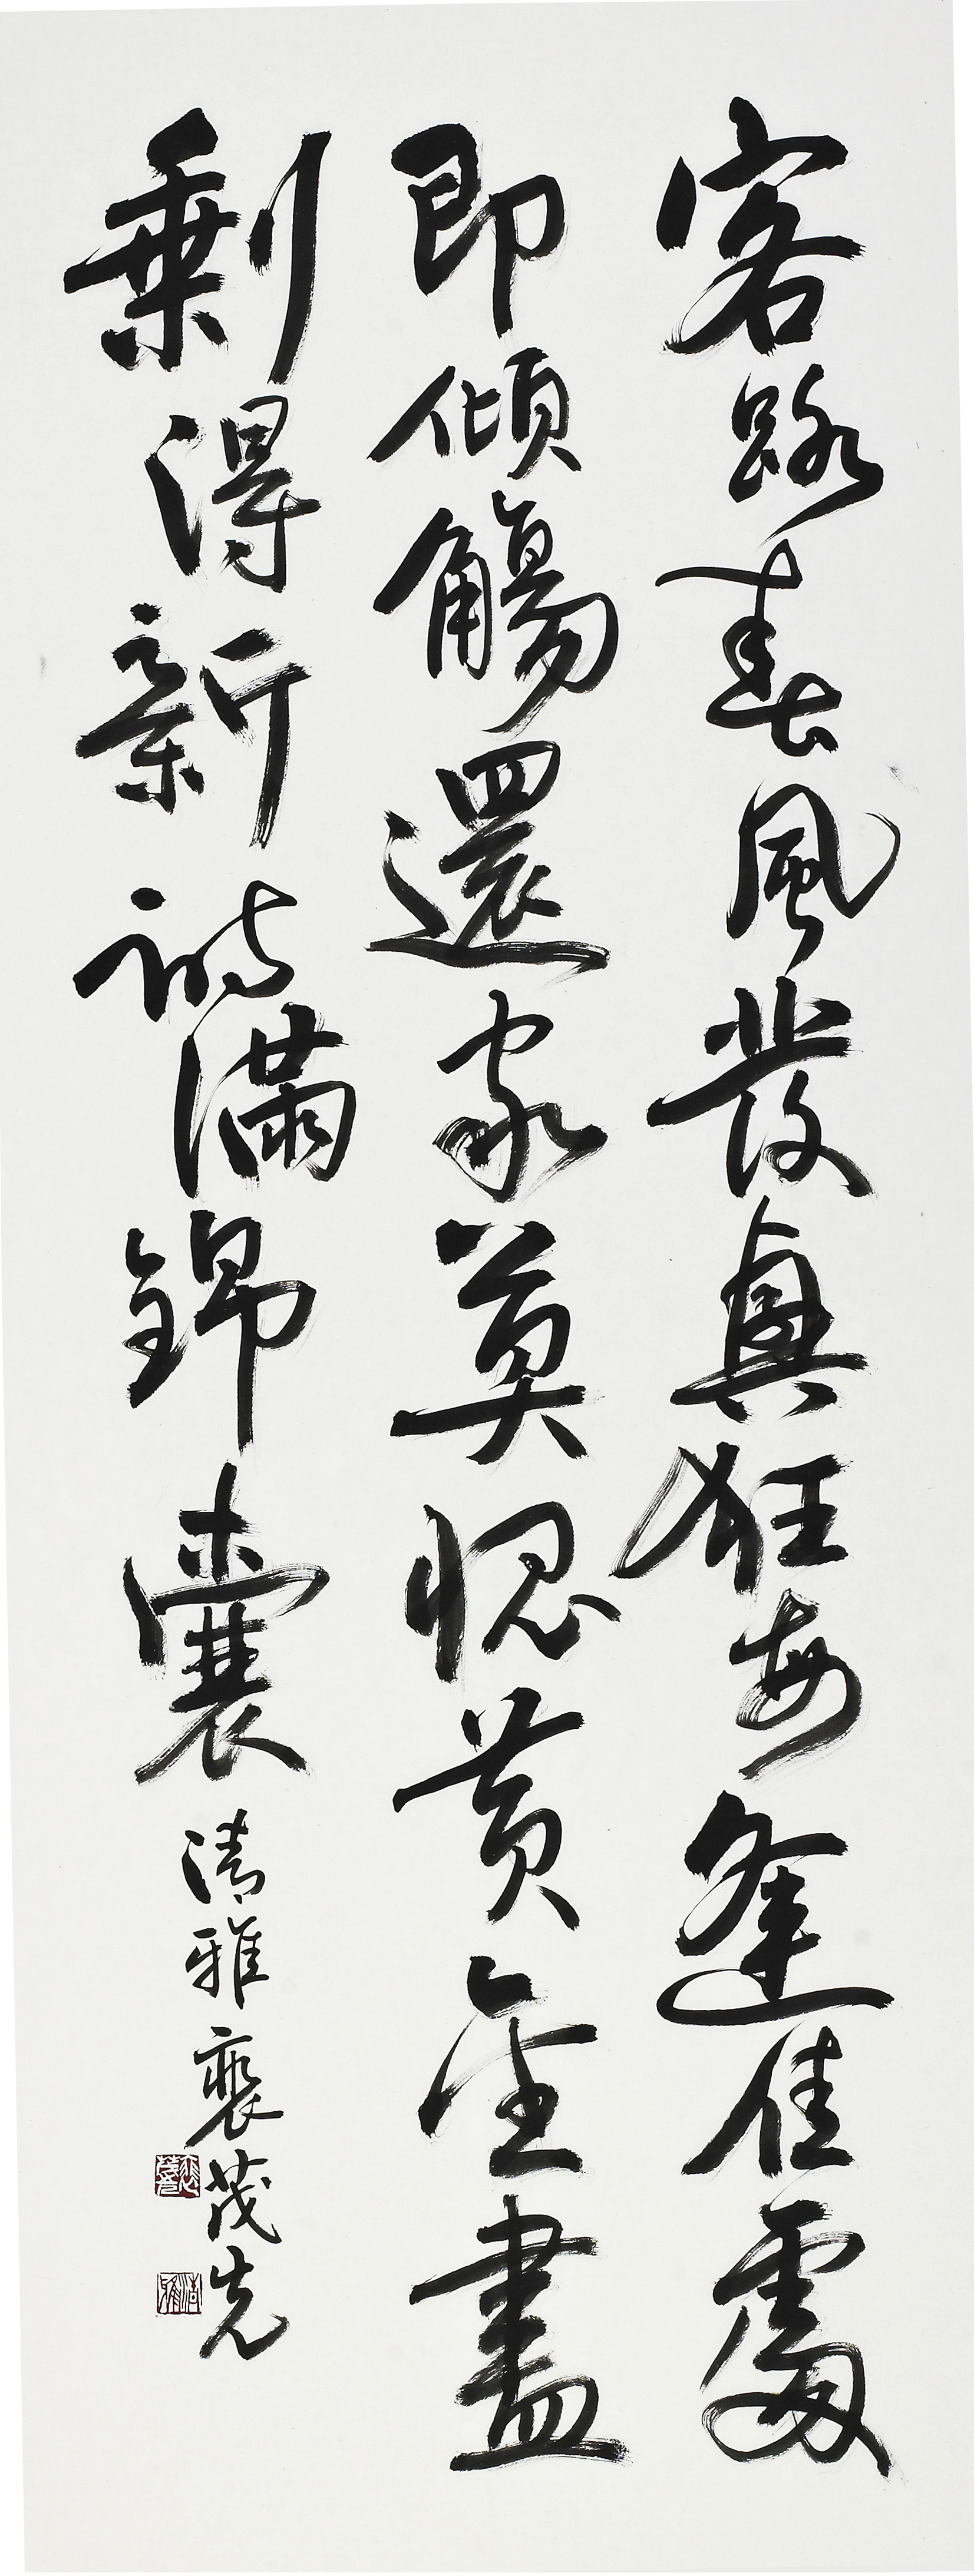 客路春風發興狂每逢佳處
即傾觴還家莫愧黃金盡
剩得新詩滿錦囊 清雅 裵茂先